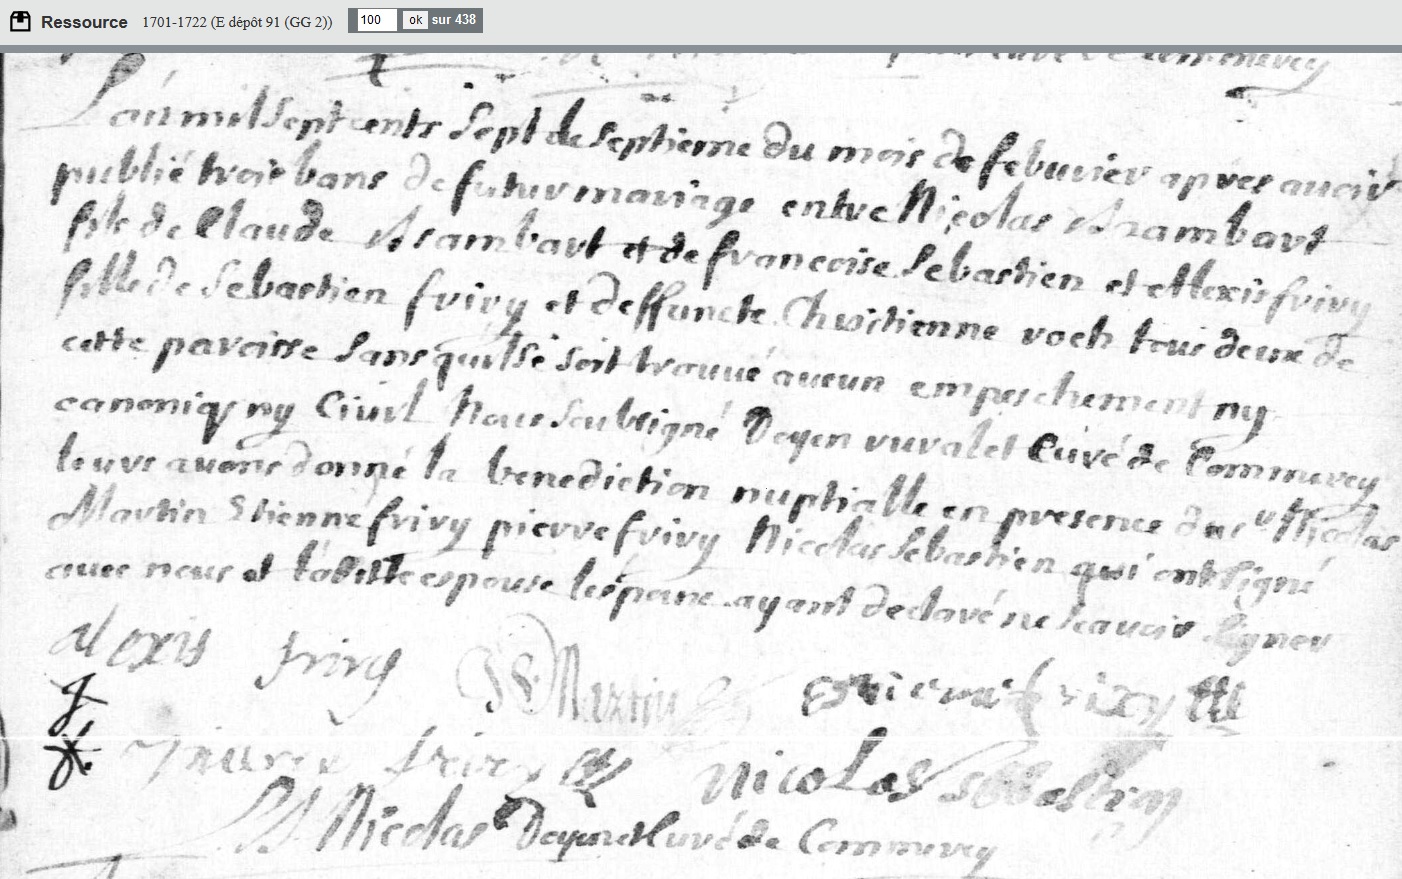 Ressource 1701-1722 (E dépôt 91 (GG 2)) 100 ok sur 438
curé de Commercy
L'an mil sept cents sept le septieme du mois de febuvier apres avoir
publié trois bans de futur mariage entre Nicolas
fils de Claude et de francoise Sebastien et Alexis friry
fille de Sebastien friry et deffuncte Chrsitienne roch tous deux de
cette paroisse sans quil se soit trouvé aucun empeschement ny
canoniq ny Civil Nous soubsigné Doyen rural et Curé de Commercy
leurs avons donné la benediction nuptialle en presence de Nicolas
Martin Etienne friry pierre friry Nicolas Sebastien qui ont signé
avec nous et espouse ayant declaré ne scavoir signer
alexis friry Martin friry
friry nicolas
Nicolas Doyen et Curé de Commercy